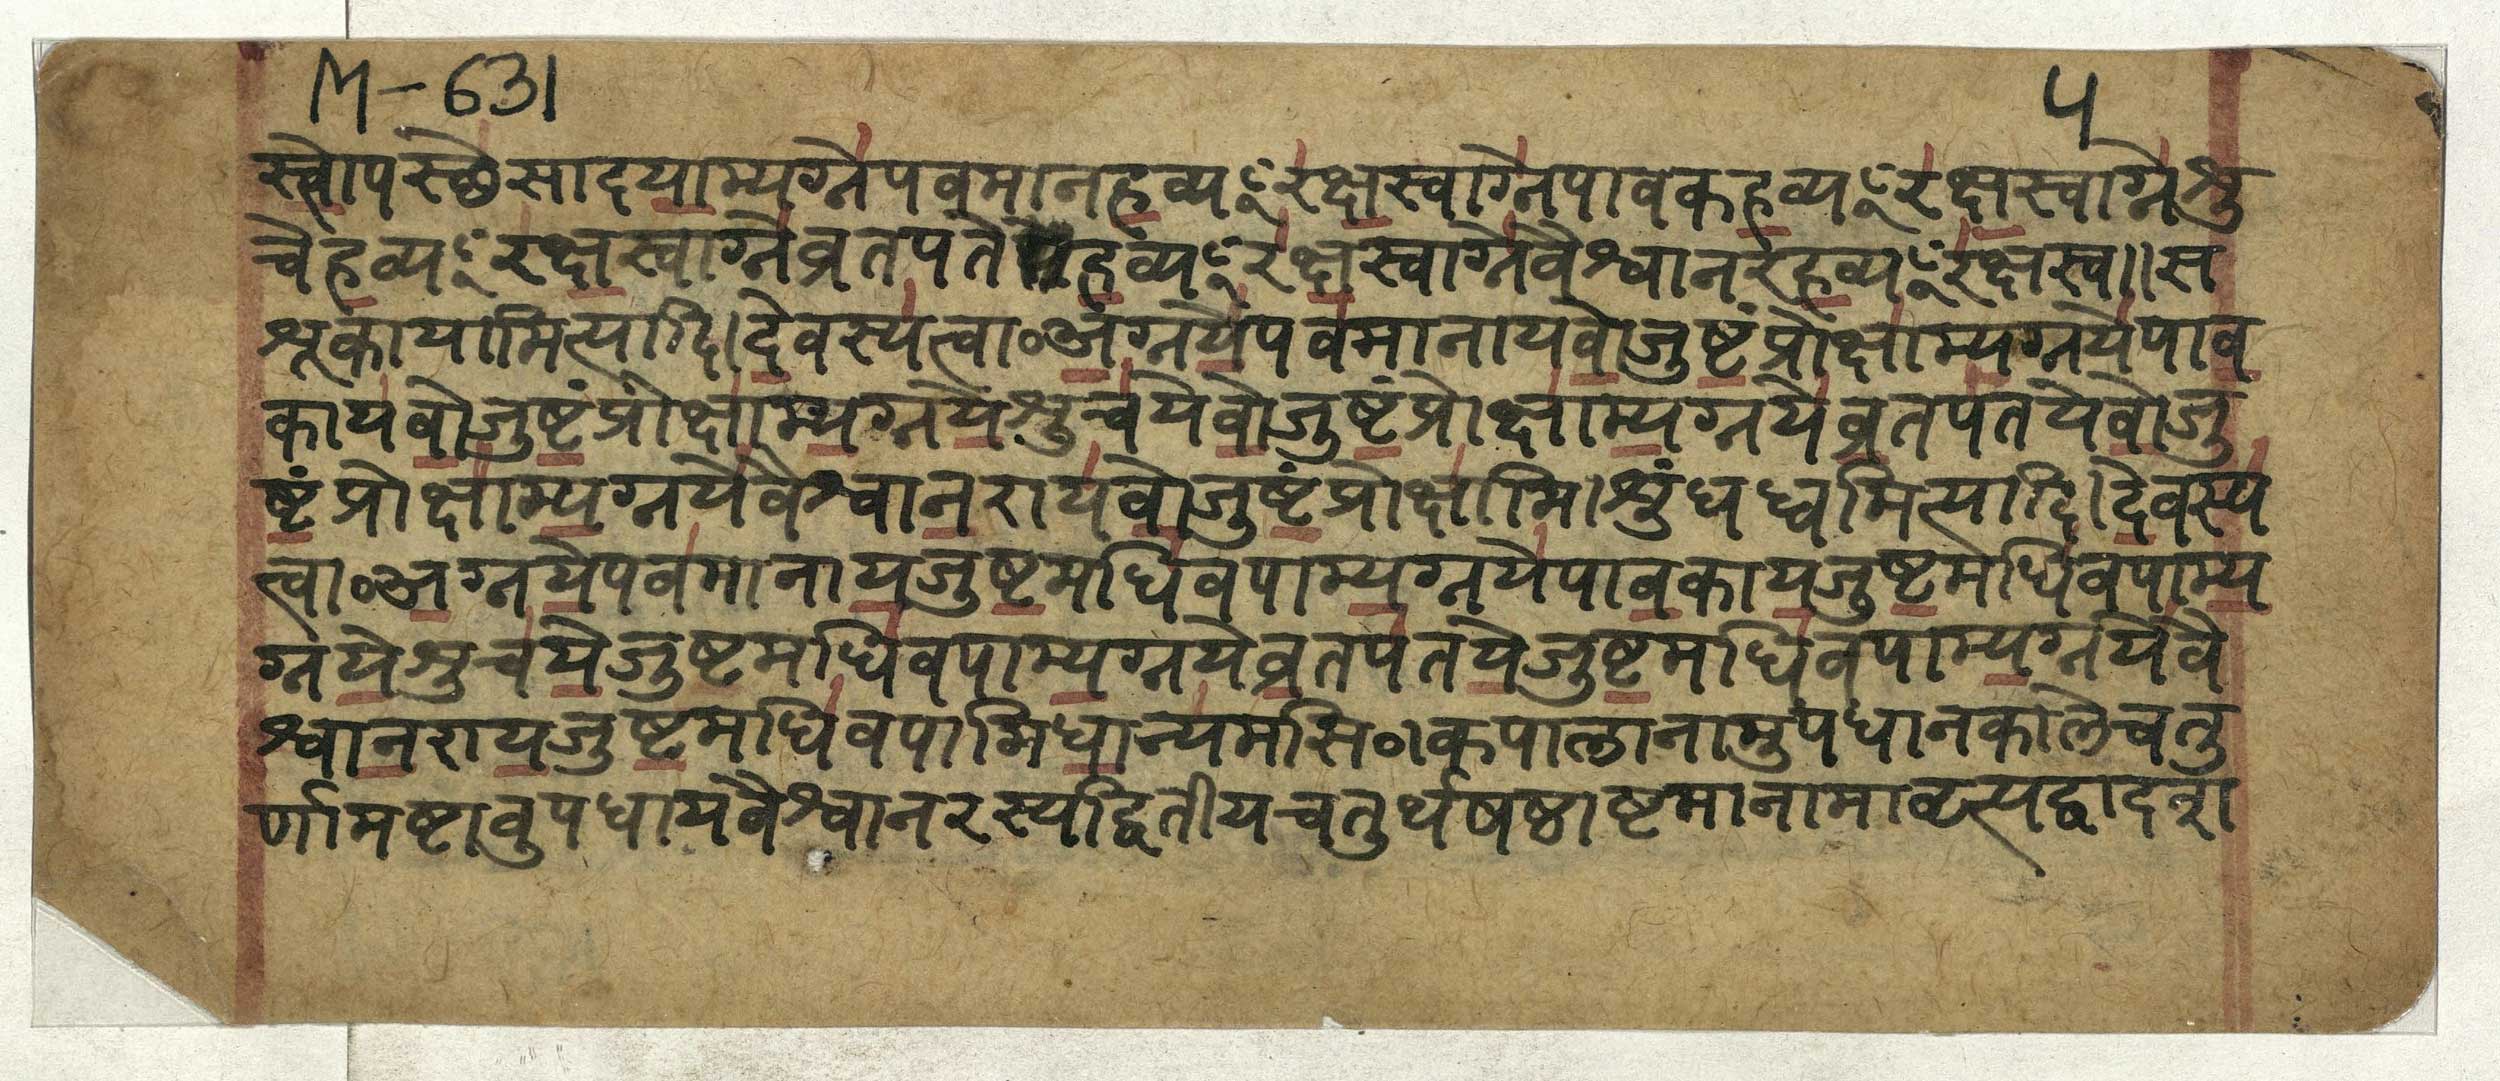 M-631
५
स्त्वोपस्छेसादयाम्यग्नेपवमानहव्यꣳरक्षस्वाग्नेपावकहव्यꣳरक्षस्वाग्नेशु
चेहव्यꣳरक्षस्वाग्नेव्रतपतेहव्यꣳरक्षस्वाग्नेवैश्वानरहव्यꣳरक्षस्व॥स
श्रूकायामित्यादि।देवस्यत्वा॰अग्नयेपवमानायवोजुष्टंप्रोक्षाम्यग्नयेपाव
कायवोजुष्टंप्रोक्षाम्यग्नयेशुचयेवोजुष्टंप्रोक्षाम्यग्नयेव्रतपतयेवोजु
ष्टंप्रोक्षाम्यग्नयेवैश्वानरायवोजुष्टंप्रोक्षामि।शुंधध्वमित्यादि।देवस्य
त्वा॰अग्नयेपवमानायजुष्टमधिवपाम्यग्नयेपावकायजुष्टमधिवपाम्य
ग्नयेशुचयेजुष्टमधिवपाम्यग्नयेव्रतपतयेजुष्टमधिवपाम्यग्नयेवै
श्वानरायजुष्टमधिवपामिधान्यमसि॰।कपालानामुपधानकालेचतु
र्णामष्टावुपधायवैश्वानरस्यद्वितीयचतुर्थषष्ठाष्टमानामावृत्यद्वादशा